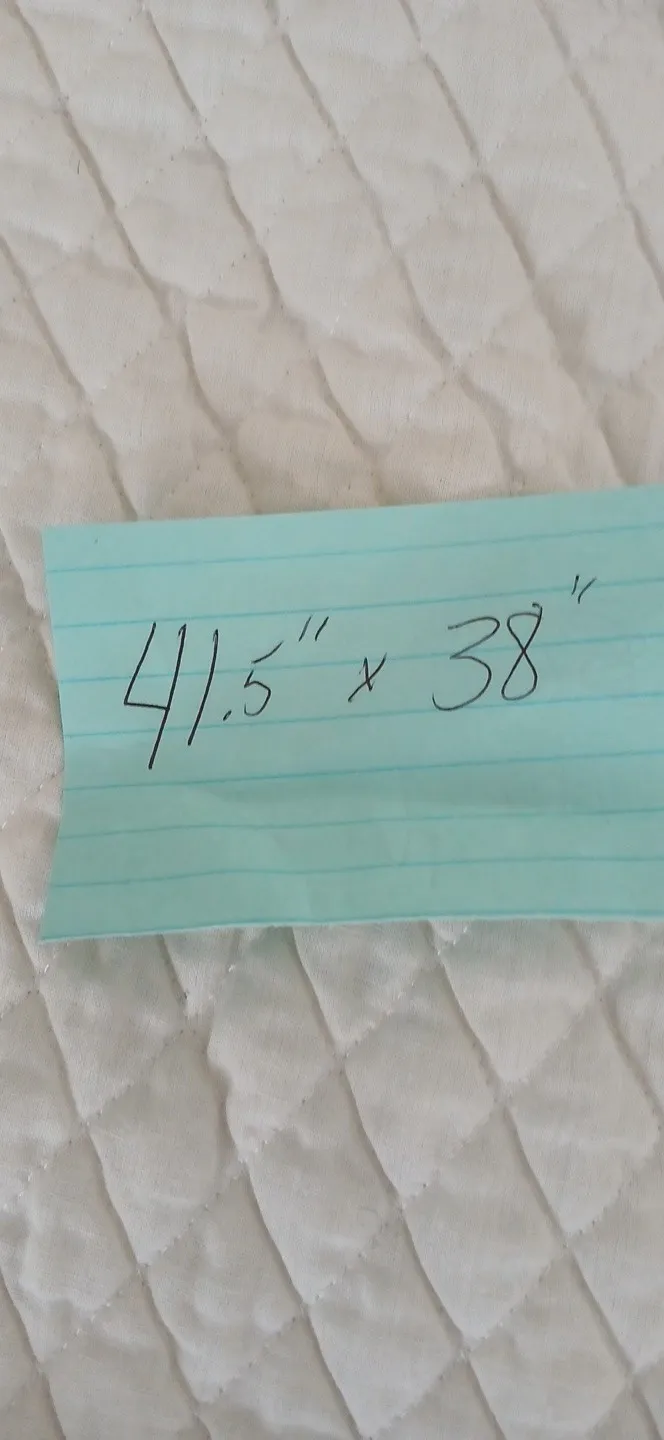 41.5" x 38"